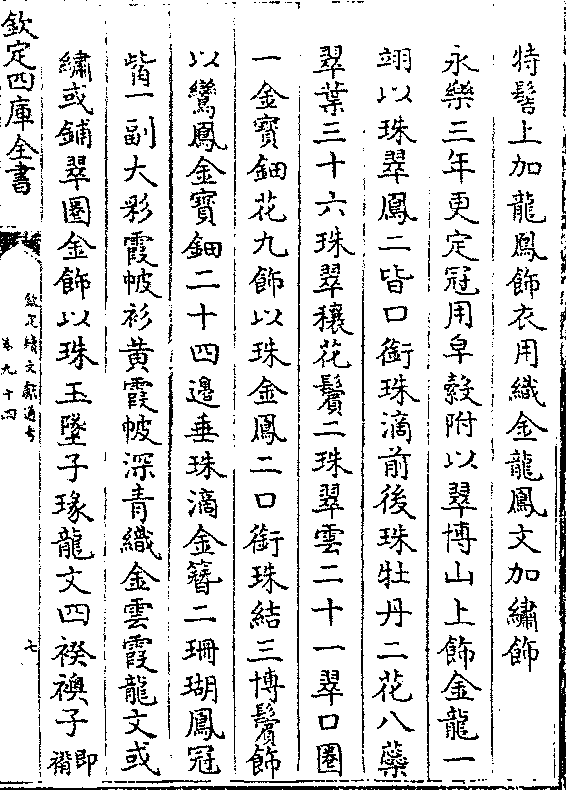 特髻上加龍鳳飾衣用織金龍鳳文加繡飾
永樂三年更定冠用皁縠附以翠博山上飾金龍一
翊以珠翠鳳二皆口銜珠滴前後珠牡丹二花八蘂
翠葉三十六珠翠穰花鬢二珠翠雲二十一翠口圈
一金寶鈿花九飾以珠金鳳二口銜珠結三博鬢飾
以鸞鳳金寶鈿二十四邊垂珠滴金簪二珊瑚鳳冠
觜一副大衫霞帔衫黄霞帔深青織金雲霞龍文或
繡或鋪翠圈金飾以珠玉墜子瑑龍文四䙆襖子即
褙
欽定四庫全書
欽定續文獻通考
卷九十四
七